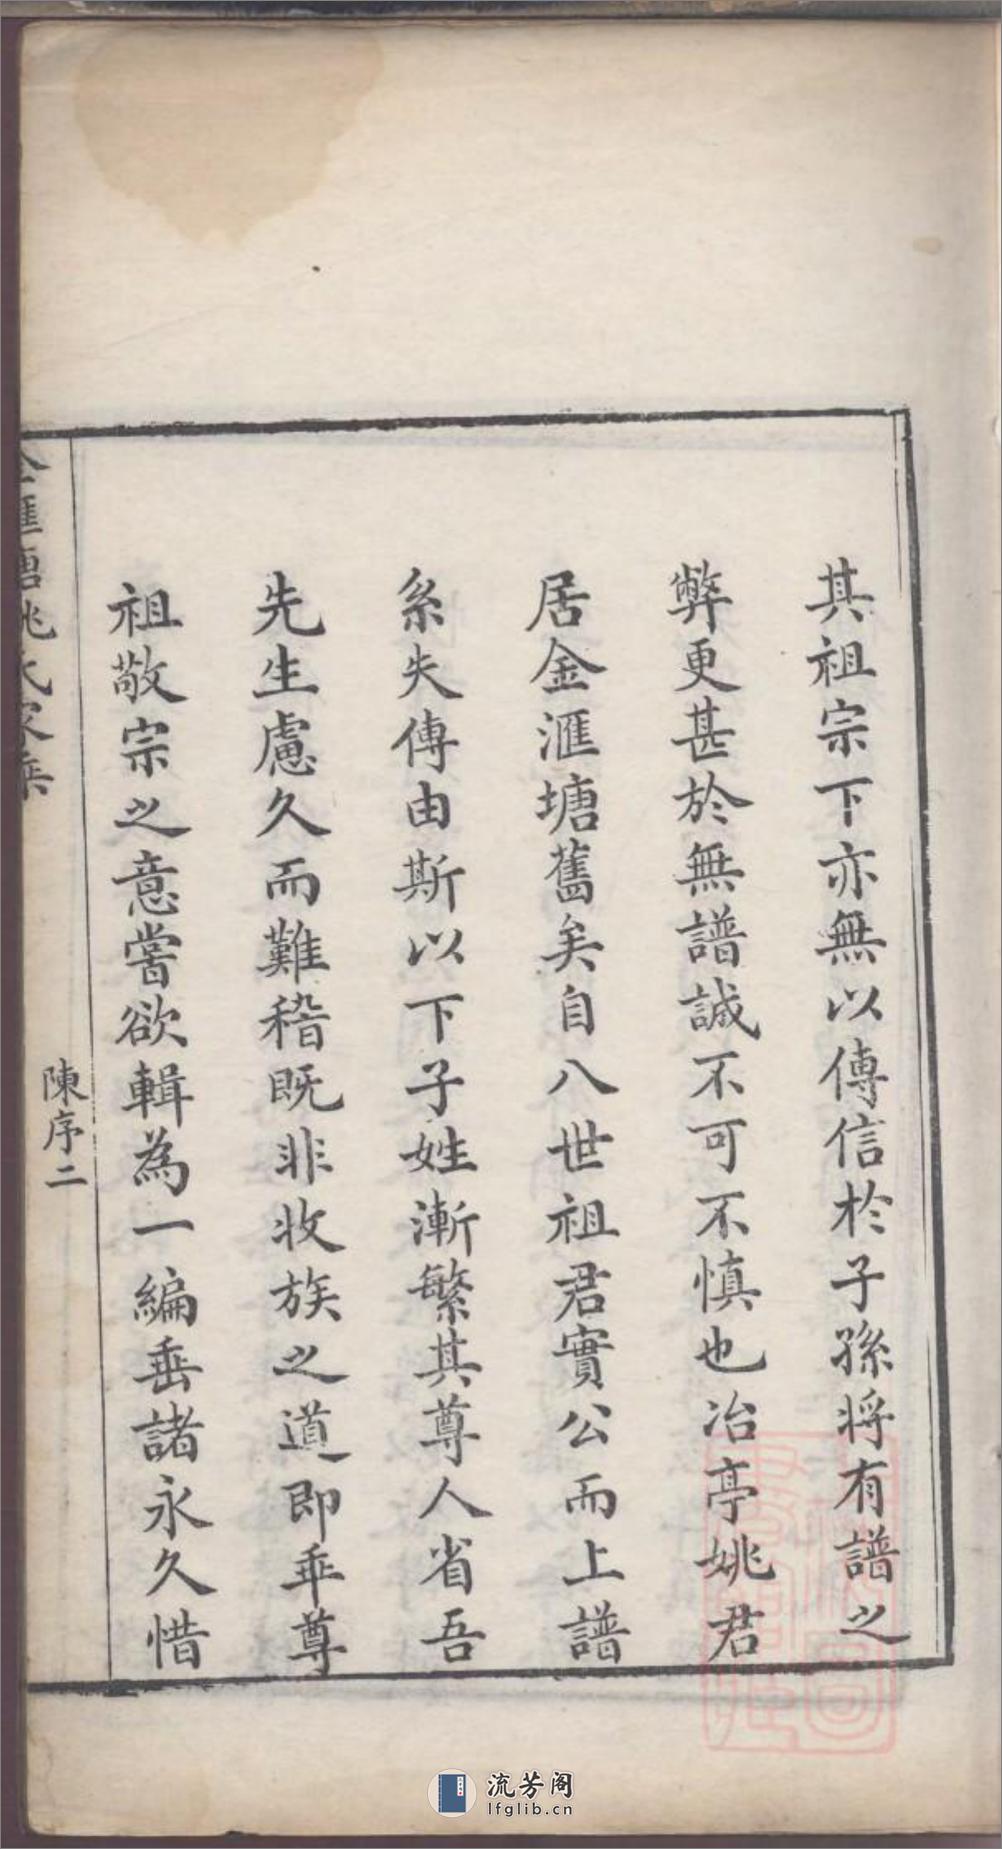 其祖宗下亦無以傳信於子孫將有譜之
弊更甚於無譜誠不可不慎也冶亭姚君
居金滙塘舊矣自八世祖君實公而上譜
系失傳由斯以下子姓漸繁其尊人省吾
先生慮久而難稽既非收族之道即乖尊
祖敬宗之意嘗欲輯為一編垂諸永久惜
金滙塘姚氏家乘
陳序二
流芳阁
lfglib.cn